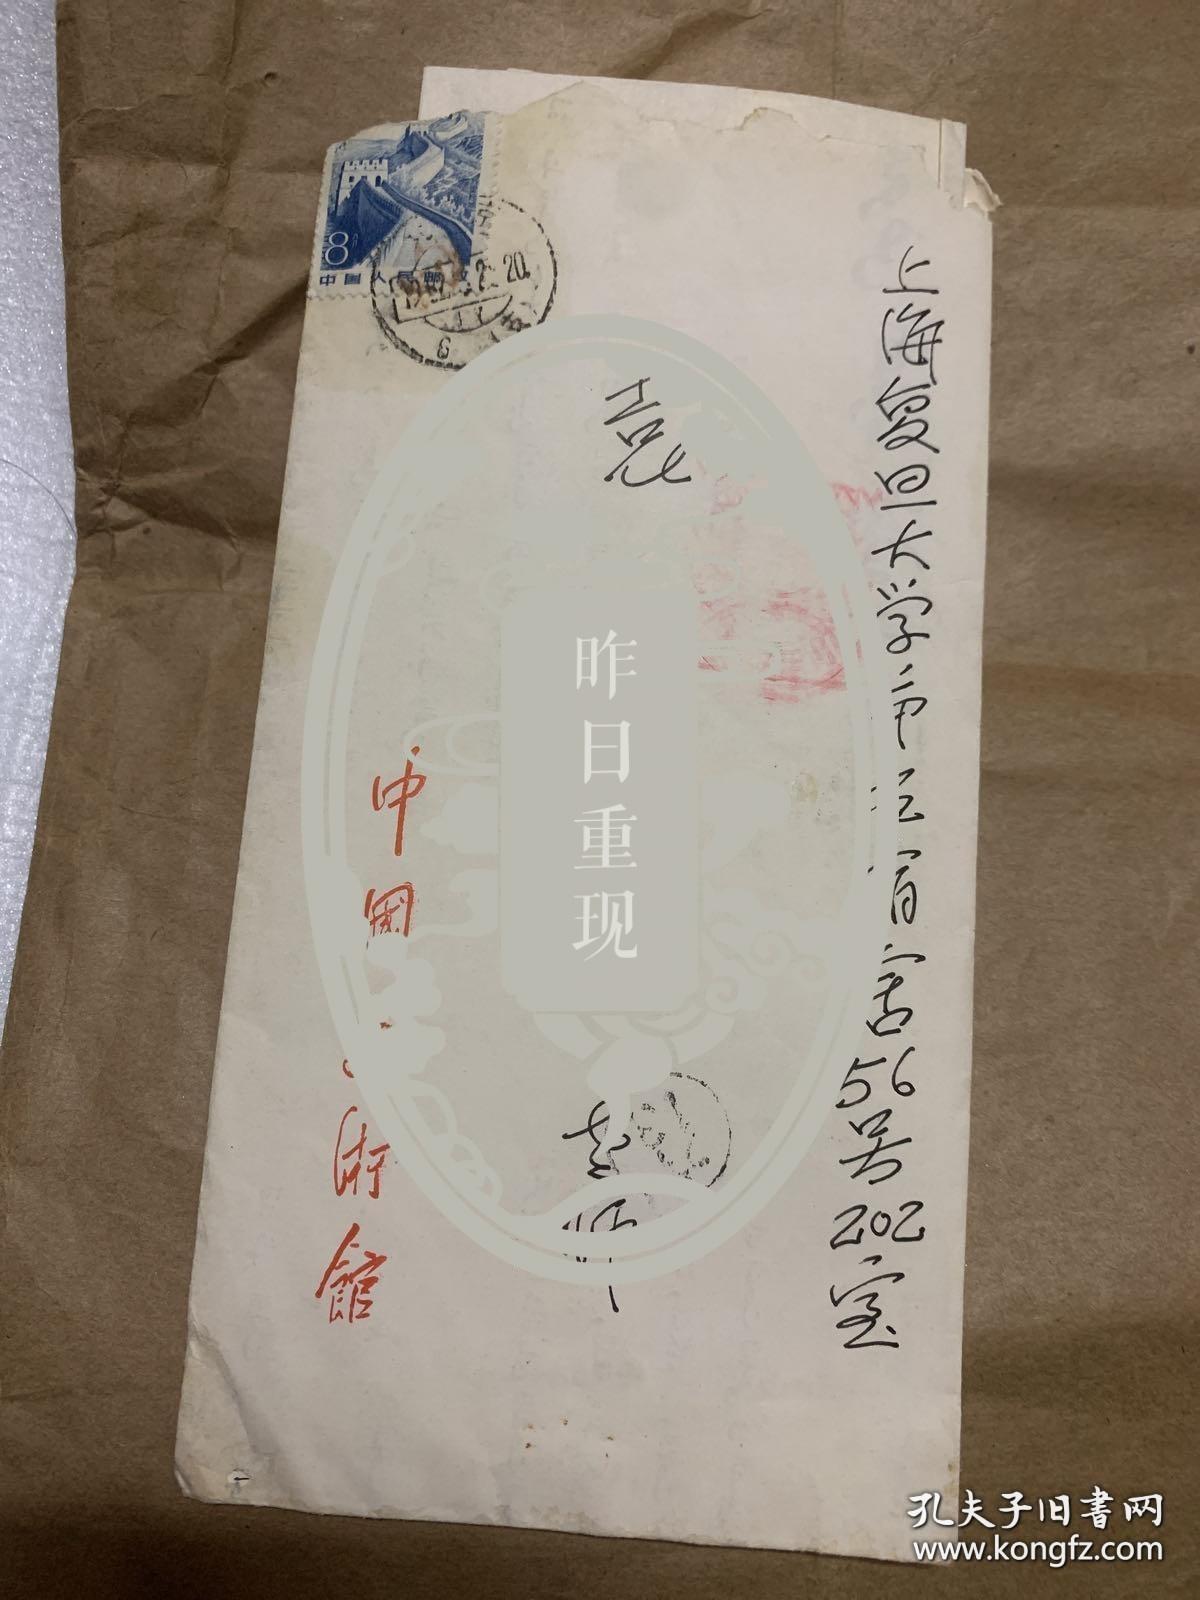 上海复旦大学第三宿舍56号202室
袁
老师
中國美術館
8分
中国人民邮政
昨日重现
孔夫子旧书网
www.kongfz.com